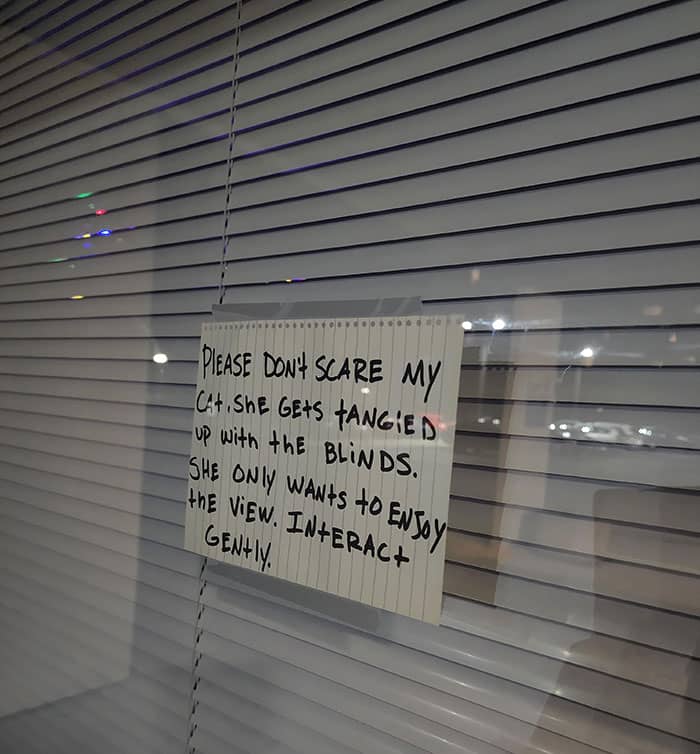 PLEASE DON't SCARE MY
CAt. SHE GEtS tANGlED
UP with thE BLiNDS.
SHE ONLY WANtS tO ENJOY
thE VIEW. INtERACt
GENtLY.